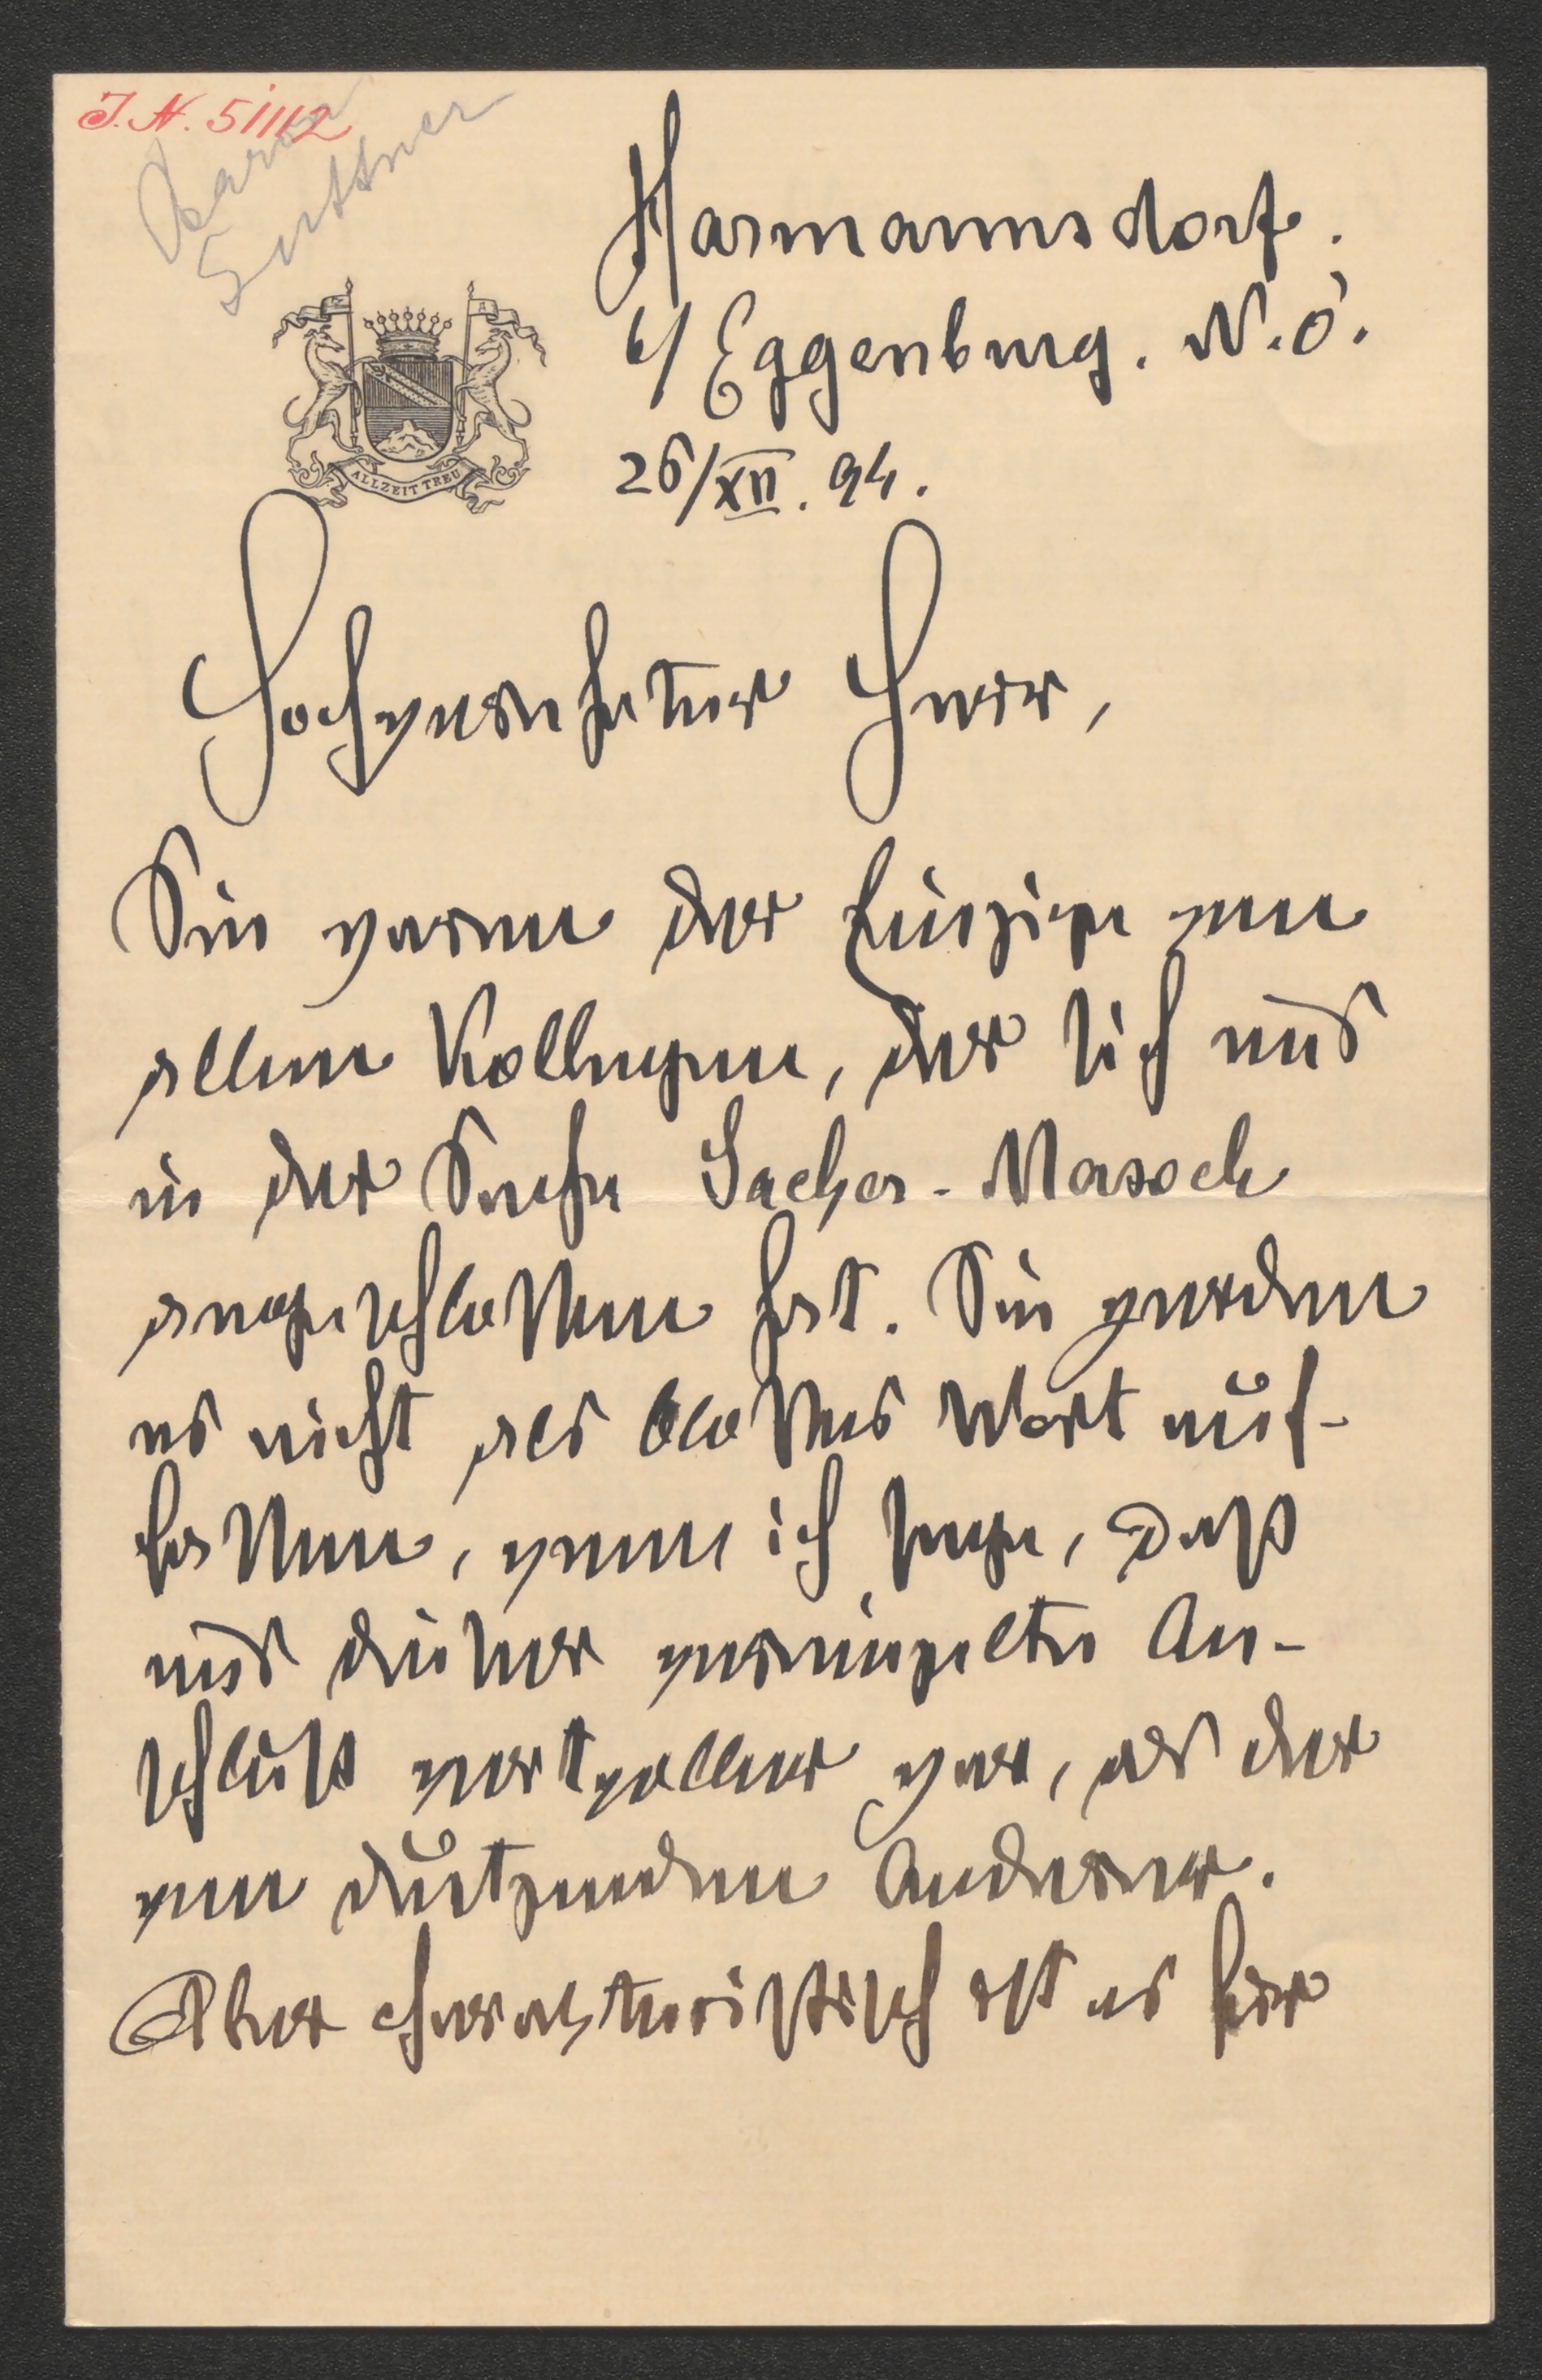 J. N. 51112
Baron
Suttner
Harmannsdorf.
b/ Eggenburg. N.Ö.
26/XII. 94.
ALLZEIT TREU
Hochverehrter Herr,
Sie waren der Einzige von
allen Kollegen, der sich uns
in der Sache Sacher-Masoch
angeschlossen hat. Sie werden
es nicht als blosses Wort auf-
fassen, wenn ich sage, daß
uns dieser vereinzelte An-
schluß wertvoller war, als der
von dutzenden Anderer.
Aber charakteristisch ist es für